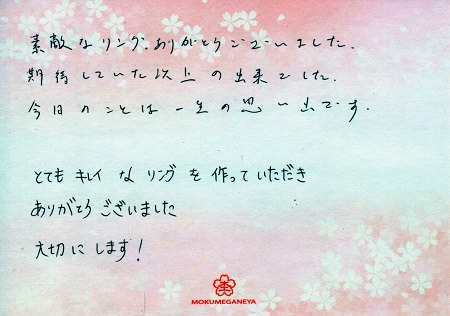 素敵なリング、ありがとうございました。
期待していた以上の出来でした。
今日のことは一生の思い出です。
とてもキレイなリングを作っていただき
ありがとうございました
大切にします!
MOKUMEGANEYA